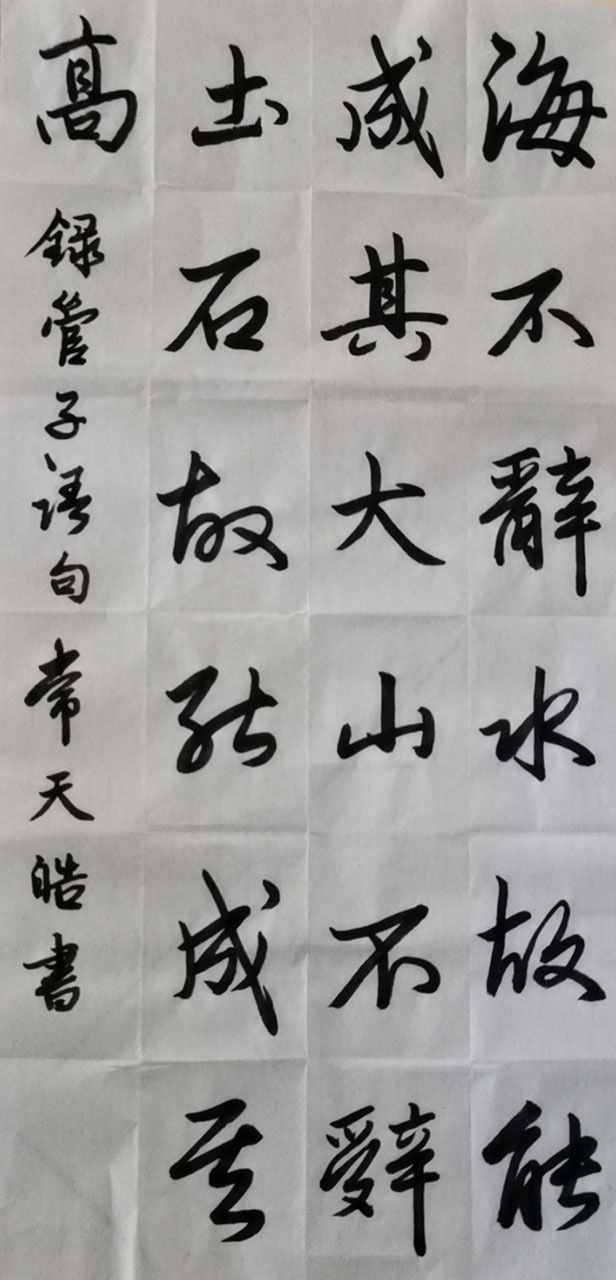 海不辭水故能
成其大山不辭
土石故能成其
高
録管子语句
常天皓書